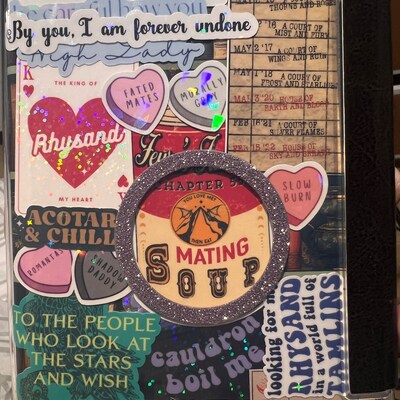 By you, I am forever undone
High Lady
THORNS AND ROSES
'16 A COURT OF
MIST AND FURY
MAY 2 '17 A COURT OF
WINGS AND RUIN
MAY 1 '18 A COURT OF
FROST AND STARLIGHT
MAR 3 '20 HOUSE OF
EARTH AND BLOOD
FEB 16 '21 A COURT OF
SILVER FLAMES
FEB 15 '22 HOUSE OF
SKY AND BREATH
K
THE KING OF
Rhysand
MY HEART
FATED
MATES
MORALLY
GREY
CHAPTER 5
YOU LOVE ME?
THEN EAT
MATING
SOUP
SLOW
BURN
ACOTAR
& CHILL
ROMANTASY
SHADOW
DADDY
TO THE PEOPLE
WHO LOOK AT
THE STARS
AND WISH
cauldron
boil me
looking for my
RHYSAND
in a world full of
TAMLINS